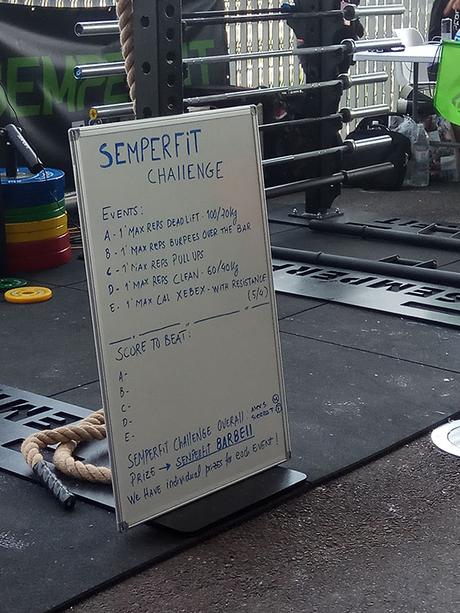 SEMPERFIT
SEMPERFIT
CHALLENGE
EVENTS:
A - 1' MAX REPS DEADLIFT - 100/70kg
B - 1' MAX REPS BURPEES OVER THE BAR
C - 1' MAX REPS PULL UPS
D - 1' MAX REPS CLEAN - 60/40kg
E - 1' MAX CAL XEBEX - WITH RESISTANCE
(5/4)
SCORE TO BEAT:
A-
B-
C-
D-
E-
SEMPERFIT CHALLENGE OVERALL
PRIZE → SEMPERFIT BARBELL
WE HAVE individual prizes for each EVENT!